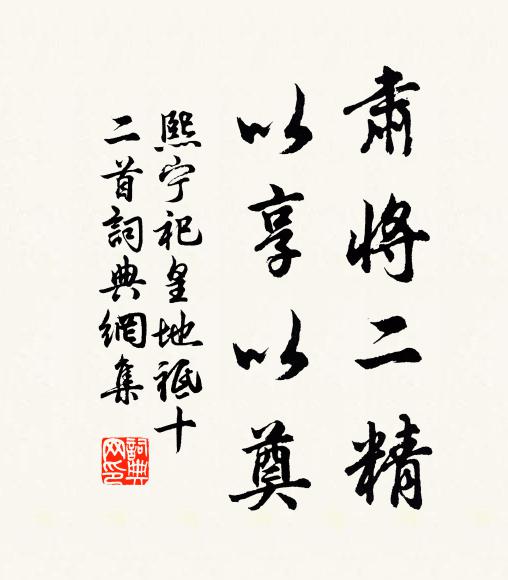 肅將二精
以享以奠
熙宁祀皇地祗十
二首詞典網集
詞典
网印